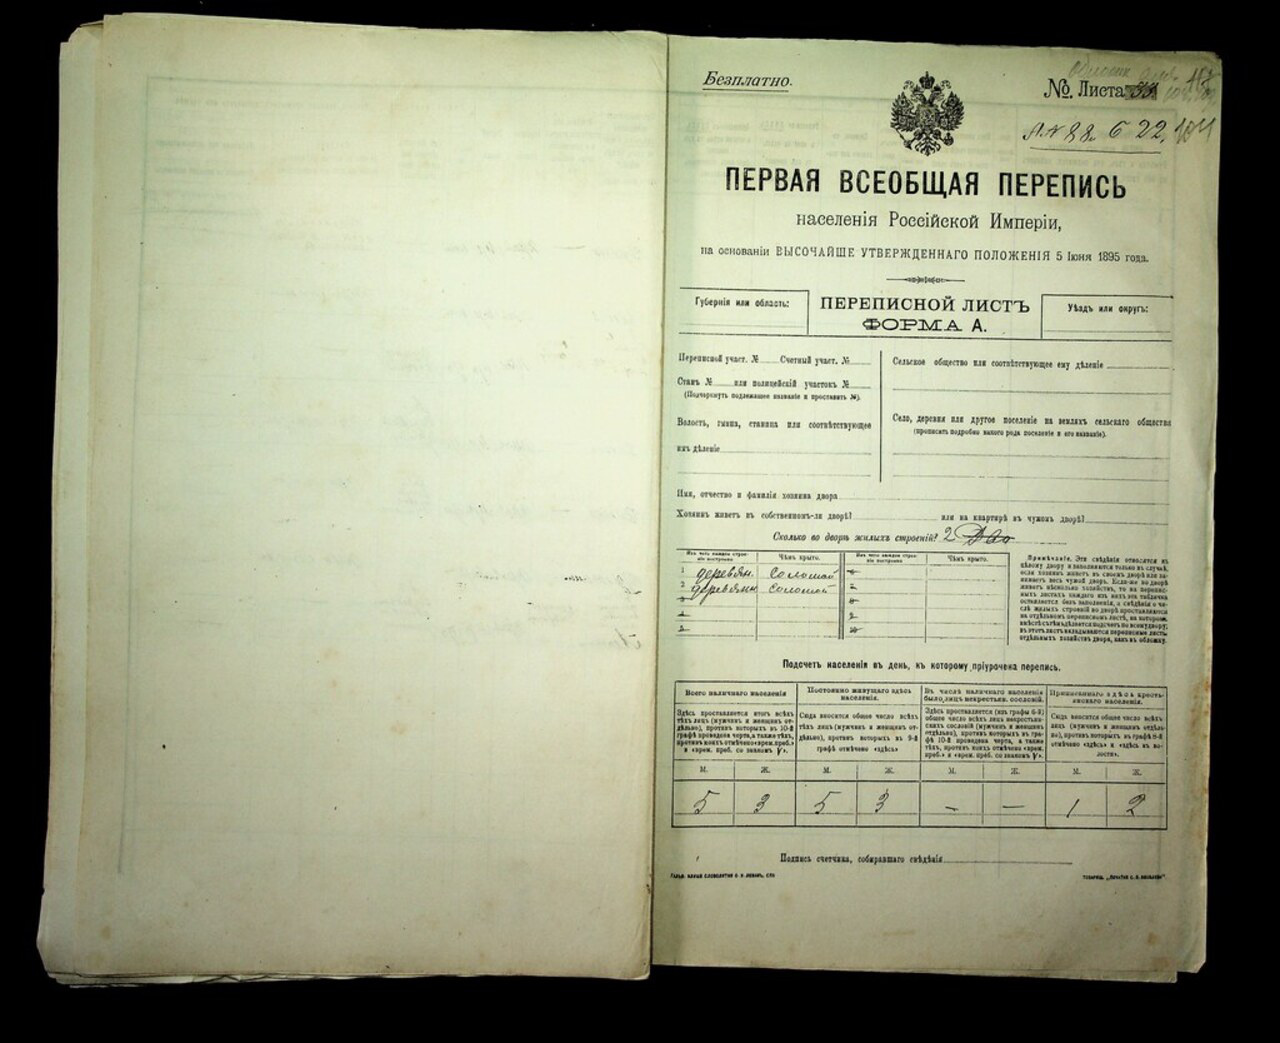 Безплатно.
№. Листа 33
22.
ПЕРВАЯ ВСЕОБЩАЯ ПЕРЕПИСЬ
населенія Россійской Имперіи,
на основаніи ВЫСОЧАЙШЕ УТВЕРЖДЕННАГО ПОЛОЖЕНІЯ 5 Іюня 1895 года.
Губернія или область:
ПЕРЕПИСНОЙ ЛИСТЪ
ФОРМА А.
Уѣздъ или округъ:
Переписной участ. № Счетный участ. №
Станъ № или полицейскій участокъ №
(Подчеркнуть подлежащее названіе и проставить №).
Волость, гмина, станица или соотвѣтствующее
имъ дѣленіе
Сельское общество или соотвѣтствующее ему дѣленіе
Село, деревня или другое поселеніе на земляхъ сельскаго общества
(прописать подробно какого рода поселеніе и его названіе).
Имя, отчество и фамилія хозяина двора
Хозяинъ живетъ въ собственномъ-ли дворѣ? или на квартирѣ въ чужомъ дворѣ?
Сколько во дворѣ жилыхъ строеній? 2
Изъ чего каждое строеніе построено
Чѣмъ крыто.
Изъ чего каждое строеніе построено
Чѣмъ крыто.
1 деревян. соломой
2 деревянн соломой
Примѣчаніе. Эти свѣдѣнія относятся къ
цѣлому двору и заполняются только въ случаѣ,
если хозяинъ живетъ въ своемъ дворѣ или занимаетъ
весь чужой дворъ. Если-же во дворѣ
живетъ нѣсколько хозяйствъ, то на переписныхъ
листахъ каждаго изъ нихъ эта табличка
оставляется безъ заполненія, а свѣдѣнія о числѣ
жилыхъ строеній во дворѣ проставляются
на отдѣльномъ переписномъ листѣ, на которомъ
вмѣстѣ съ тѣмъ дѣлается подсчетъ по всему двору;
въ этотъ листъ вкладываются переписные листы
отдѣльныхъ хозяйствъ двора, какъ въ обложку.
Подсчетъ населенія въ день, къ которому пріурочена перепись.
Всего наличнаго населенія
Здѣсь проставляется итогъ всѣхъ
тѣхъ лицъ (мужчинъ и женщинъ отдѣльно),
противъ которыхъ въ 10-й
графѣ проведена черта, а также тѣхъ,
противъ коихъ отмѣчено «врем. преб.»
и «врем. преб. со знакомъ V».
Постоянно живущаго здѣсь
населенія.
Сюда вносится общее число всѣхъ
тѣхъ лицъ (мужчинъ и женщинъ отдѣльно),
противъ которыхъ въ 9-й
графѣ отмѣчено «здѣсь»
Въ числѣ наличнаго населенія
было лицъ некрестьян. сословій.
Здѣсь проставляется (изъ графы 6-й)
общее число всѣхъ лицъ некрестьянскихъ
сословій (мужчинъ и женщинъ
отдѣльно), противъ которыхъ въ графѣ
10-й проведена черта, а также
тѣхъ, противъ коихъ отмѣчено «врем.
преб.» и «врем. преб. со знакомъ V».
Приписаннаго здѣсь крестьянскаго
населенія.
Сюда вносится общее число всѣхъ
лицъ (мужчинъ и женщинъ отдѣльно),
противъ которыхъ въ графѣ 8-й
отмѣчено «здѣсь» и «здѣсь въ волости».
М. Ж. М. Ж. М. Ж. М. Ж.
5 3 5 3 — — 1 2
Подпись счетчика, собиравшаго свѣдѣнія